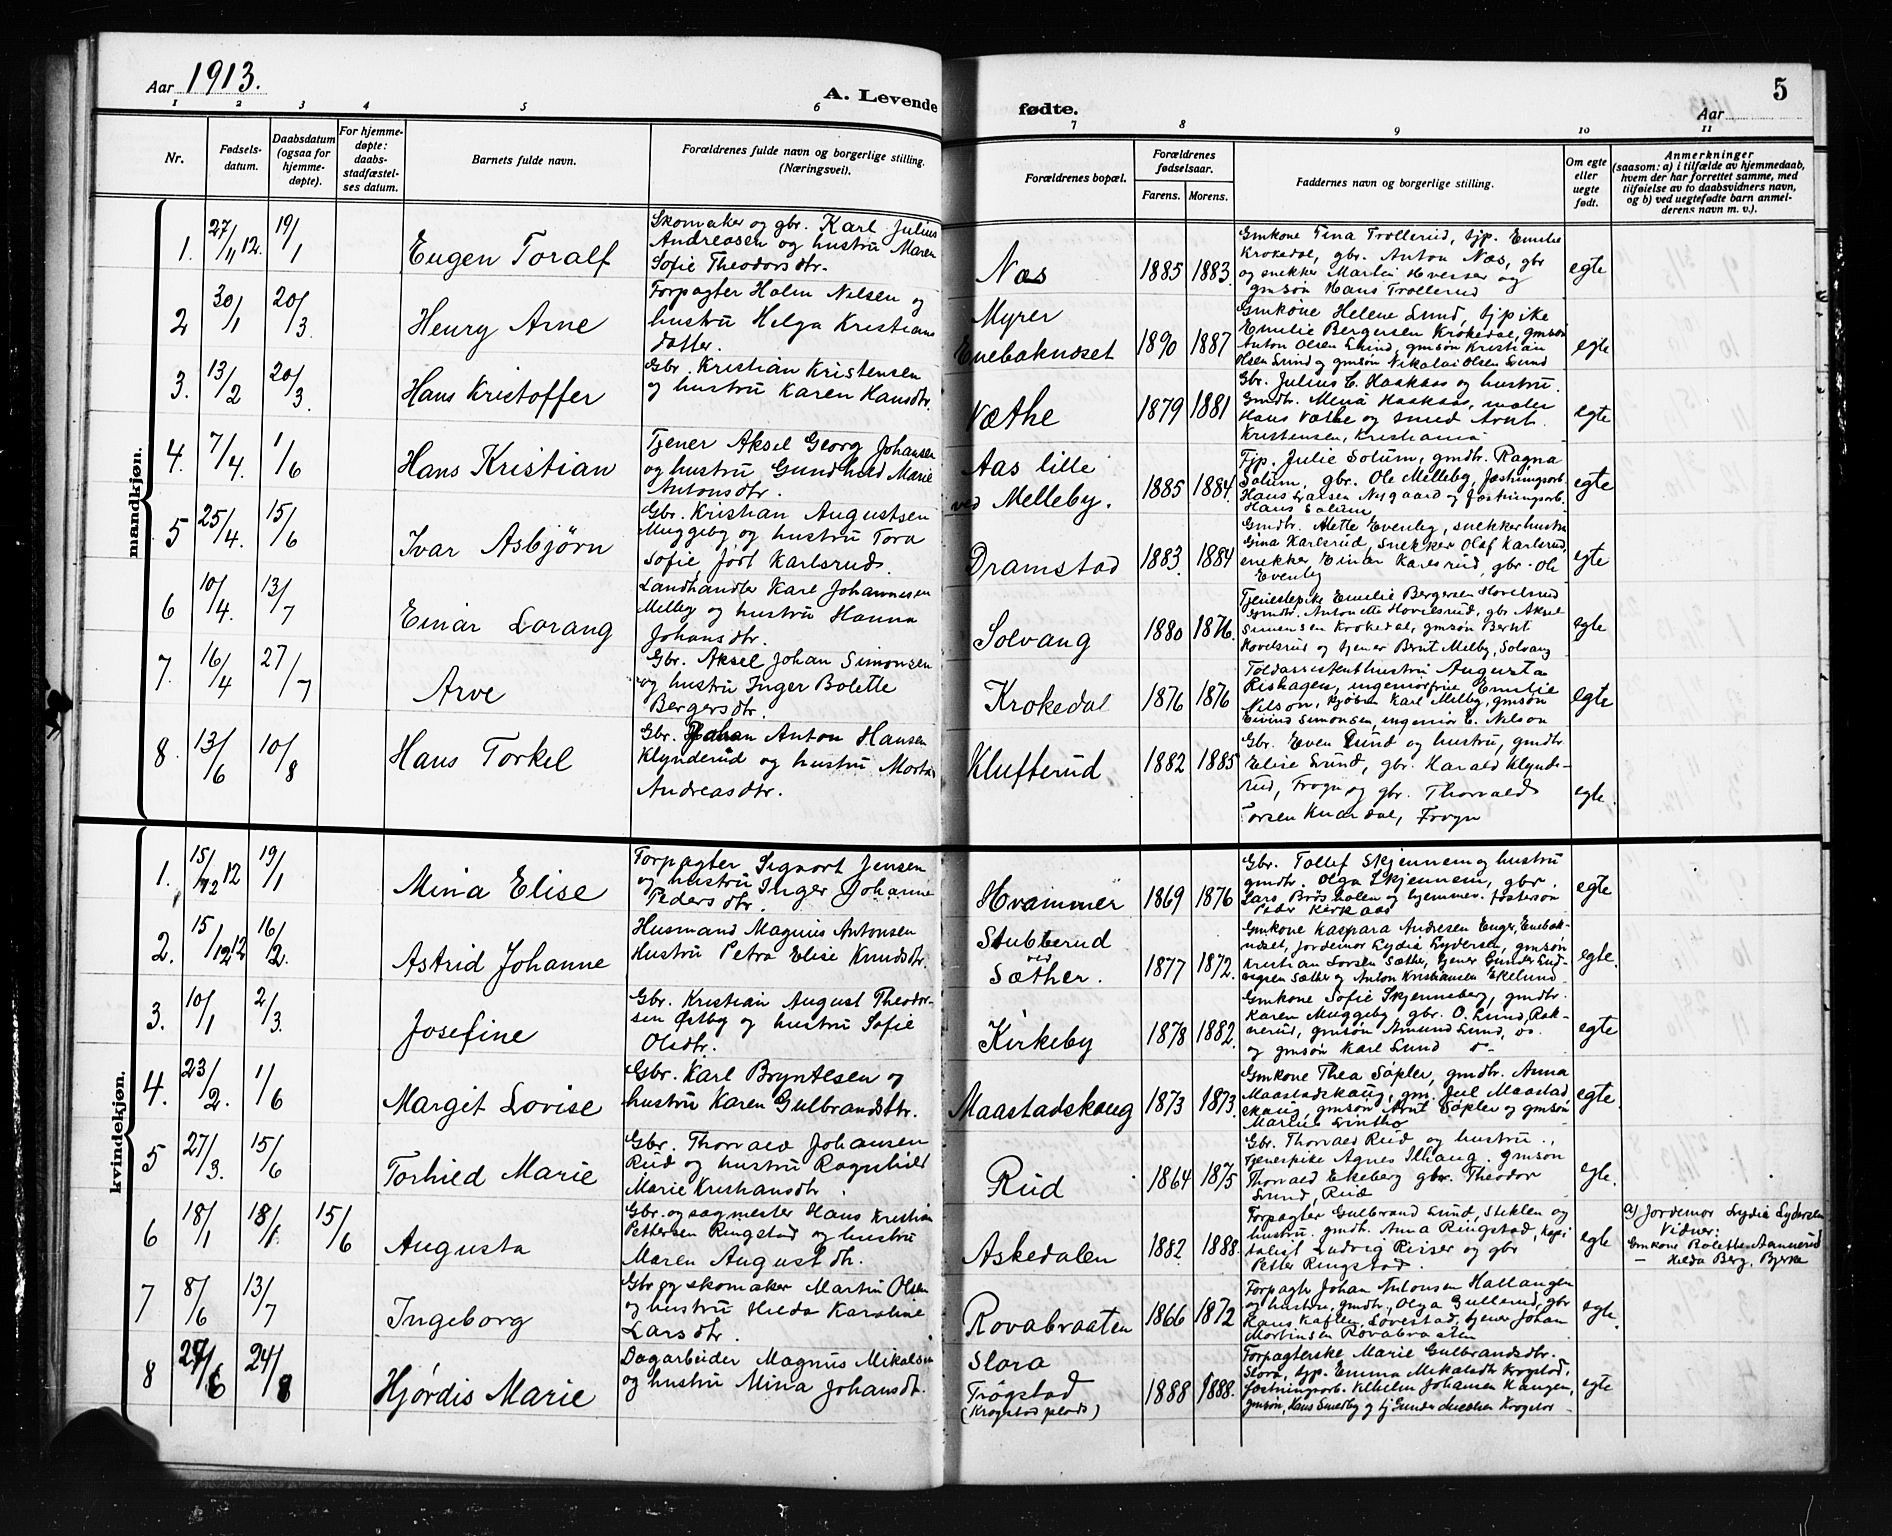 Aar 1913.
A. Levende
fødte.
5
Aar
1 2 3 4 5 6
7 8 9 10 11
Nr.
Fødsels-
datum.
Daabsdatum
(ogsaa for
hjemme-
døpte).
For hjemme-
døpte:
daabs-
stadfæstel-
ses datum.
Barnets fulde navn.
Forældrenes fulde navn og borgerlige stilling.
(Næringsvei).
Forældrenes bopæl.
Forældrenes
fødselsaar.
Farens. Morens.
Faddernes navn og borgerlige stilling.
Om egte
eller
uegte
født.
Anmerkninger
(saasom: a) i tilfælde av hjemmedaab,
hvem der har forrettet samme, med
tilføielse av to daabsvidners navn,
og b) ved uegtefødte barn anmel-
derens navn m. v.).
mandkjøn.
1. 27/11 12. 19/1 Eugen Toralf
Skomaker og gbr. Karl Julius
Andreasen og hustru Maren
Sofie Theodorsdtr.
Næs 1885 1883.
Gmkone Tina Trollerud, tjp. Emilie
Krokedal, gbr. Anton Næs, gbr
og snekker Martin Iverser og
gmsøn Hans Trollerud
egte
2 30/1 20/3. Henry Arne
Forpagter Holm Nilsen og
hustru Helga Kristians
datter.
Myrer
Enebaknæset 1890 1887
Gmkone Helene Lund, tjpike
Emilie Bergersen Krokedal, gmsøn
Anton Olsen Lund, gmsøn Kristian
Olsen Lund og gmsøn Nikolai Olsen Lund
egte
3. 13/2 20/3. Hans Kristoffer
Gbr. Kristian Kristensen
og hustru Karen Hansdtr.
Væthe 1879 1881
Gbr. Julius C. Haakaas og hustru.
Gmdtr. Mena Haakaas, maler
Hans Væthe og smed Arnt.
Kristensen, Kristiania
egte
4. 7/4. 1/6 Hans Kristian
Tjener Aksel Georg Johansen
og hustru Gundhild Marie
Antonsdtr.
Aas lille
ved Melleby. 1885 1884.
Tjp. Julie Solum, gmdtr. Ragna
Solum, gbr. Ole Melleby, fæstningsarb.
Hans Larsen Nygaard og fæstningsarb.
Hans Solum
egte
5 25/4. 15/6 Ivar Asbjørn
Gbr. Kristian Augustsen
Muggeby og hustru Tora
Sofie født Karlsrud.
Dramstad 1883. 1884
Gmdtr. Alette Evenby, snekkerhustru
Gina Karlsrud, snekker Olaf Karlsrud,
snekker Einar Karlsrud, gbr. Ole
Evenby
egte
6 10/4. 13/7 Einar Lorang
Landhandler Karl Johannesen
Melleby og hustru Hanna
Johansdtr.
Solvang 1880 1876.
Tjenestepike Emilie Bergersen Hovelsrud
gmdtr. Antonette Hovelsrud, gbr Aksel
Simensen Krokedal, gmsøn Bernt
Hovelsrud og tjener Bernt Melby, Solvang
egte
7. 16/4 27/7 Arve
Gbr. Aksel Johan Simonsen
og hustru Inger Bolette
Bergersdtr.
Krokedal 1876 1876
Toldassistenthustru Augusta
Rishagen, ingeniørfrue Emilie
Nilson, kjøbm Karl Melby, gmsøn
Eivind Simonsen, ingeniør E. Nelson
egte
8. 13/6 10/8 Hans Torkel
Gbr. Johan Anton Hansen
Klynderud og hustru Marta
Andreasdtr.
Klufterud 1882 1885
Gbr. Even Lund og hustru, gmdtr
Elise Lund, gbr. Harald Klynde-
rud, Frogn og gbr. Thorvald
Torsen Knardal, Frogn
egte.
kvindekjøn.
1. 15/12 12 19/1 Mina Elise
Forpagter Sigvart Jensen
og hustru Inger Johanne
Pedersdtr.
Hvammer 1869 1876
Gbr. Tollef Skjennem og hustru
gmdtr. Olga Skjennem, gbr.
Lars Brøsholen og hjemmev. fostersøn
Peder Kirkaas
egte
2. 15/12 12 16/2. Astrid Johanne
Husmand Magnus Antonsen
Hustru Petra Elise Knudsdtr.
Stubberud
ved
Sæther. 1877 1872.
Gmkone Kaspara Andresen Enger, Enebak-
næset, jordemor Lydia Lydersen, gmsøn
Kristian Larsen Sæther, tjener Gunder Lud-
vigsen Sæther og Anton Kristiansen Ekelund
egte.
3. 10/1 2/3. Josefine
Gbr. Kristian August Theodor-
sen Østby og hustru Sofie
Olsdtr.
Kirkeby 1878 1882.
Gmkone Sofie Skjenneberg, gmdtr.
Karen Muggeby gbr. O. Lund, Rak-
nerud, gmsøn Amund Lund, os.
og gmsøn Karl Lund
egte
4. 23/2. 1/6 Margit Lovise
Gbr. Karl Bryntlsen og
hustru Karen Gulbrandsttr.
Maastadskaug 1873 1873.
Gmkone Thea Søpler, gmdtr. Anna
Maastadskaug, gm. Jul Maastad
skaug, gmsøn Arnt Søpler og gmsøn
Martin Lintho
egte.
5 27/3. 15/6 Torhild Marie
Gbr. Thorvald Johansen
Rud og hustru Ragnhild
Marie Kristiansdtr.
Rud 1864 1875
Gbr. Thorvald Rud og hustru.,
Tjenerpike Agnes Ilhaug, gmsøn
Thorvald Ekeberg gbr. Theodor
Lund, Rud
egte.
6 18/1 18/1 15/6 Augusta
Gbr. og sagmester Hans Kristian
Pettersen Ringstad og hustru
Maren Augustdtr.
Askedalen 1882 1888.
Forpagter Gulbrand Lund, Stiklen og
hustru, gmdtr. Anna Ringstad, kapi
talist Ludvig Riiser og gbr
Petter Ringstad.
egte
a) Jordemor Lydia Lydersen
Vidner:
Gmkone Bolette Aannerud
— Hilda Berg, Bjerke
7 8/6 13/7 Ingeborg
Gbr og skomaker Martin Olsen
og hustru Hilda Karoline
Larsdtr.
Rovabraaten 1866 1872
Forpagtr Johan Antonsen Hallangen
og hustru, gmdtr. Olga Gullerud, gbr
Hans Kaflen, Lovestad, tjener Johan
Martinsen Rovabraaten
egte.
8 27/6 24/8 Hjørdis Marie
Dagarbeider Magnus Mikalsen
og hustru Mina Johansdt.
Slora
Trøgstad
(Krogstad plads) 1888 1888.
Forpagterske Marie Gulbrandsdtr.
Slora, tjp. Emma Mikalsdtr Krogstad,
fæstningsarb. Vilhelm Johansen Haugen,
gmsøn, Hans Smedby og tj Gunder Krogstad
egte